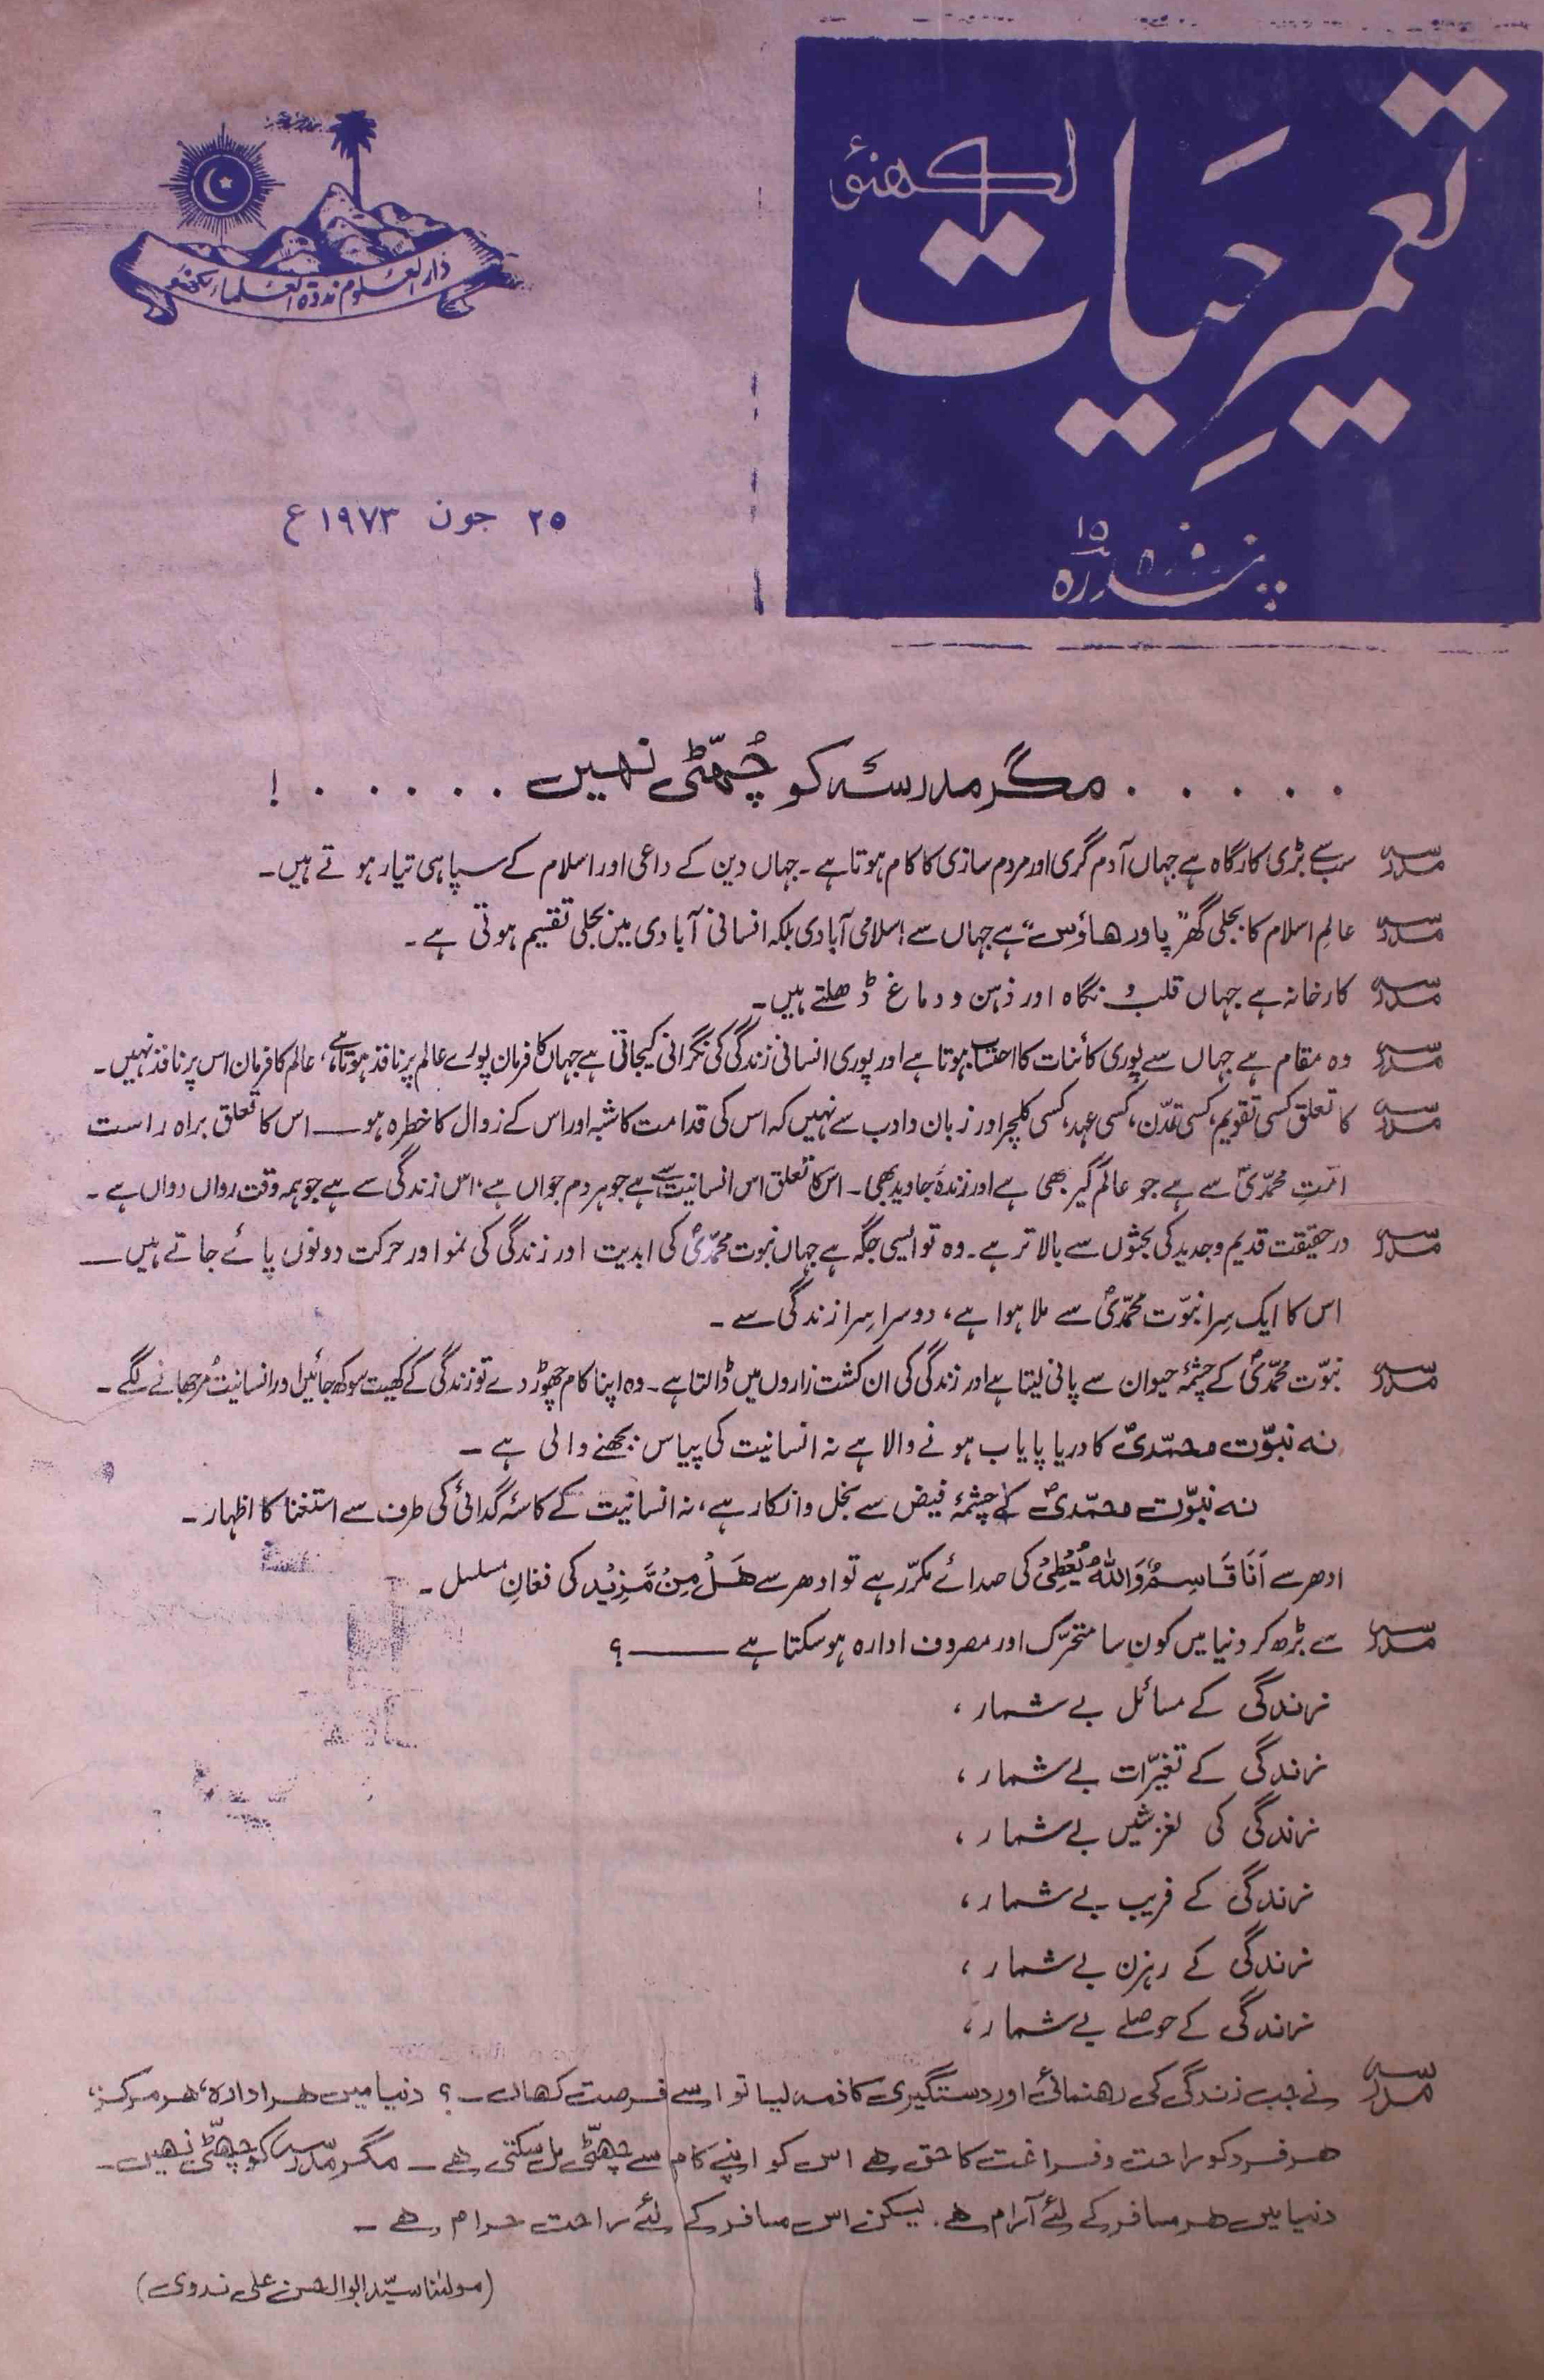 تعمیرِ حیات
لکھنؤ
پندرہ ۱۵ روزہ
دارالعلوم ندوۃ العلماء لکھنؤ
۲۵ جون ۱۹۷۳ ع
. . . . . مگر مدرسہ کو چُھٹّی نہیں . . . . . !
مدرسہ سب سے بڑی کارگاہ ہے جہاں آدم گری اور مردم سازی کا کام ہوتا ہے۔ جہاں دین کے داعی اور اسلام کے سپاہی تیار ہوتے ہیں۔
مدرسہ عالمِ اسلام کا بجلی گھر "پاور ھاؤس" ہے جہاں سے اسلامی آبادی بلکہ انسانی آبادی میں بجلی تقسیم ہوتی ہے۔
مدرسہ کارخانہ ہے جہاں قلب و نگاہ اور ذہن و دماغ ڈھلتے ہیں۔
مدرسہ وہ مقام ہے جہاں سے پوری کائنات کا احتساب ہوتا ہے اور پوری انسانی زندگی کی نگرانی کیجاتی ہے جہاں کا فرمان پورے عالم پر نافذ ہوتا ہے، عالم کا فرمان اس پر نافذ نہیں۔
مدرسہ کا تعلق کسی تقویم، کسی تمدّن، کسی عہد، کسی کلچر اور زبان و ادب سے نہیں کہ اس کی قدامت کا شبہ اور اس کے زوال کا خطرہ ہو — اس کا تعلق براہ راست
امّتِ محمّدیؐ سے ہے جو عالمگیر بھی ہے اور زندۂ جاوید بھی۔ اس کا تعلق اس انسانیت سے ہے جو ہر دم جواں ہے، اس زندگی سے ہے جو ہمہ وقت رواں دواں ہے۔
مدرسہ درحقیقت قدیم و جدید کی بحثوں سے بالاتر ہے۔ وہ تو ایسی جگہ ہے جہاں نبوت محمّدیؐ کی ابدیت اور زندگی کی نمو اور حرکت دونوں پائے جاتے ہیں —
اس کا ایک سِرا نبوّت محمّدیؐ سے ملا ہوا ہے، دوسرا سِرا زندگی سے۔
مدرسہ نبوّت محمّدیؐ کے چشمۂ حیوان سے پانی لیتا ہے اور زندگی کی ان کشت زاروں میں ڈالتا ہے۔ وہ اپنا کام چھوڑ دے تو زندگی کے کھیت سوکھ جائیں اور انسانیت مُرجھانے لگے۔
نہ نبوّت محمّدیؐ کا دریا پایاب ہونے والا ہے نہ انسانیت کی پیاس بجھنے والی ہے۔
نہ نبوّت محمّدیؐ کے چشمۂ فیض سے بخل و انکار ہے، نہ انسانیت کے کاسۂ گدائی کی طرف سے استغنا کا اظہار۔
ادھر سے اَنَا قَاسِمٌ وَاللّٰهُ یُعْطِیْ کی صدائے مکرّر ہے تو ادھر سے هَلْ مِنْ مَّزِیْد کی فغانِ مسلسل۔
مدرسہ سے بڑھ کر دنیا میں کون سا متحرّک اور مصروف ادارہ ہوسکتا ہے —— ؟
زندگی کے مسائل بے شمار،
زندگی کے تغیّرات بے شمار،
زندگی کی لغزشیں بے شمار،
زندگی کے فریب بے شمار،
زندگی کے رہزن بے شمار،
زندگی کے حوصلے بے شمار،
مدرسہ نے جب زندگی کی رهنمائی اور دستگیری کا ذمہ لیا تو اسے فرصت کہاں۔؟ دنیا میں ھر ادارہ، ھر مرکز،
ھر فرد کو راحت و فراغت کا حق ھے اس کو اپنے کام سے چھٹّی مل سکتی ھے۔ مگر مدرسہ کو چھٹّی نھیں۔
دنیا میں ھر مسافر کے لئے آرام ھے۔ لیکن اس مسافر کے لئے راحت حرام ھے۔
(مولٰنا سیّد ابوالحسن علی ندوی)